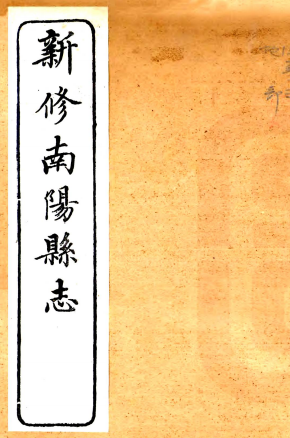 新修南陽縣志